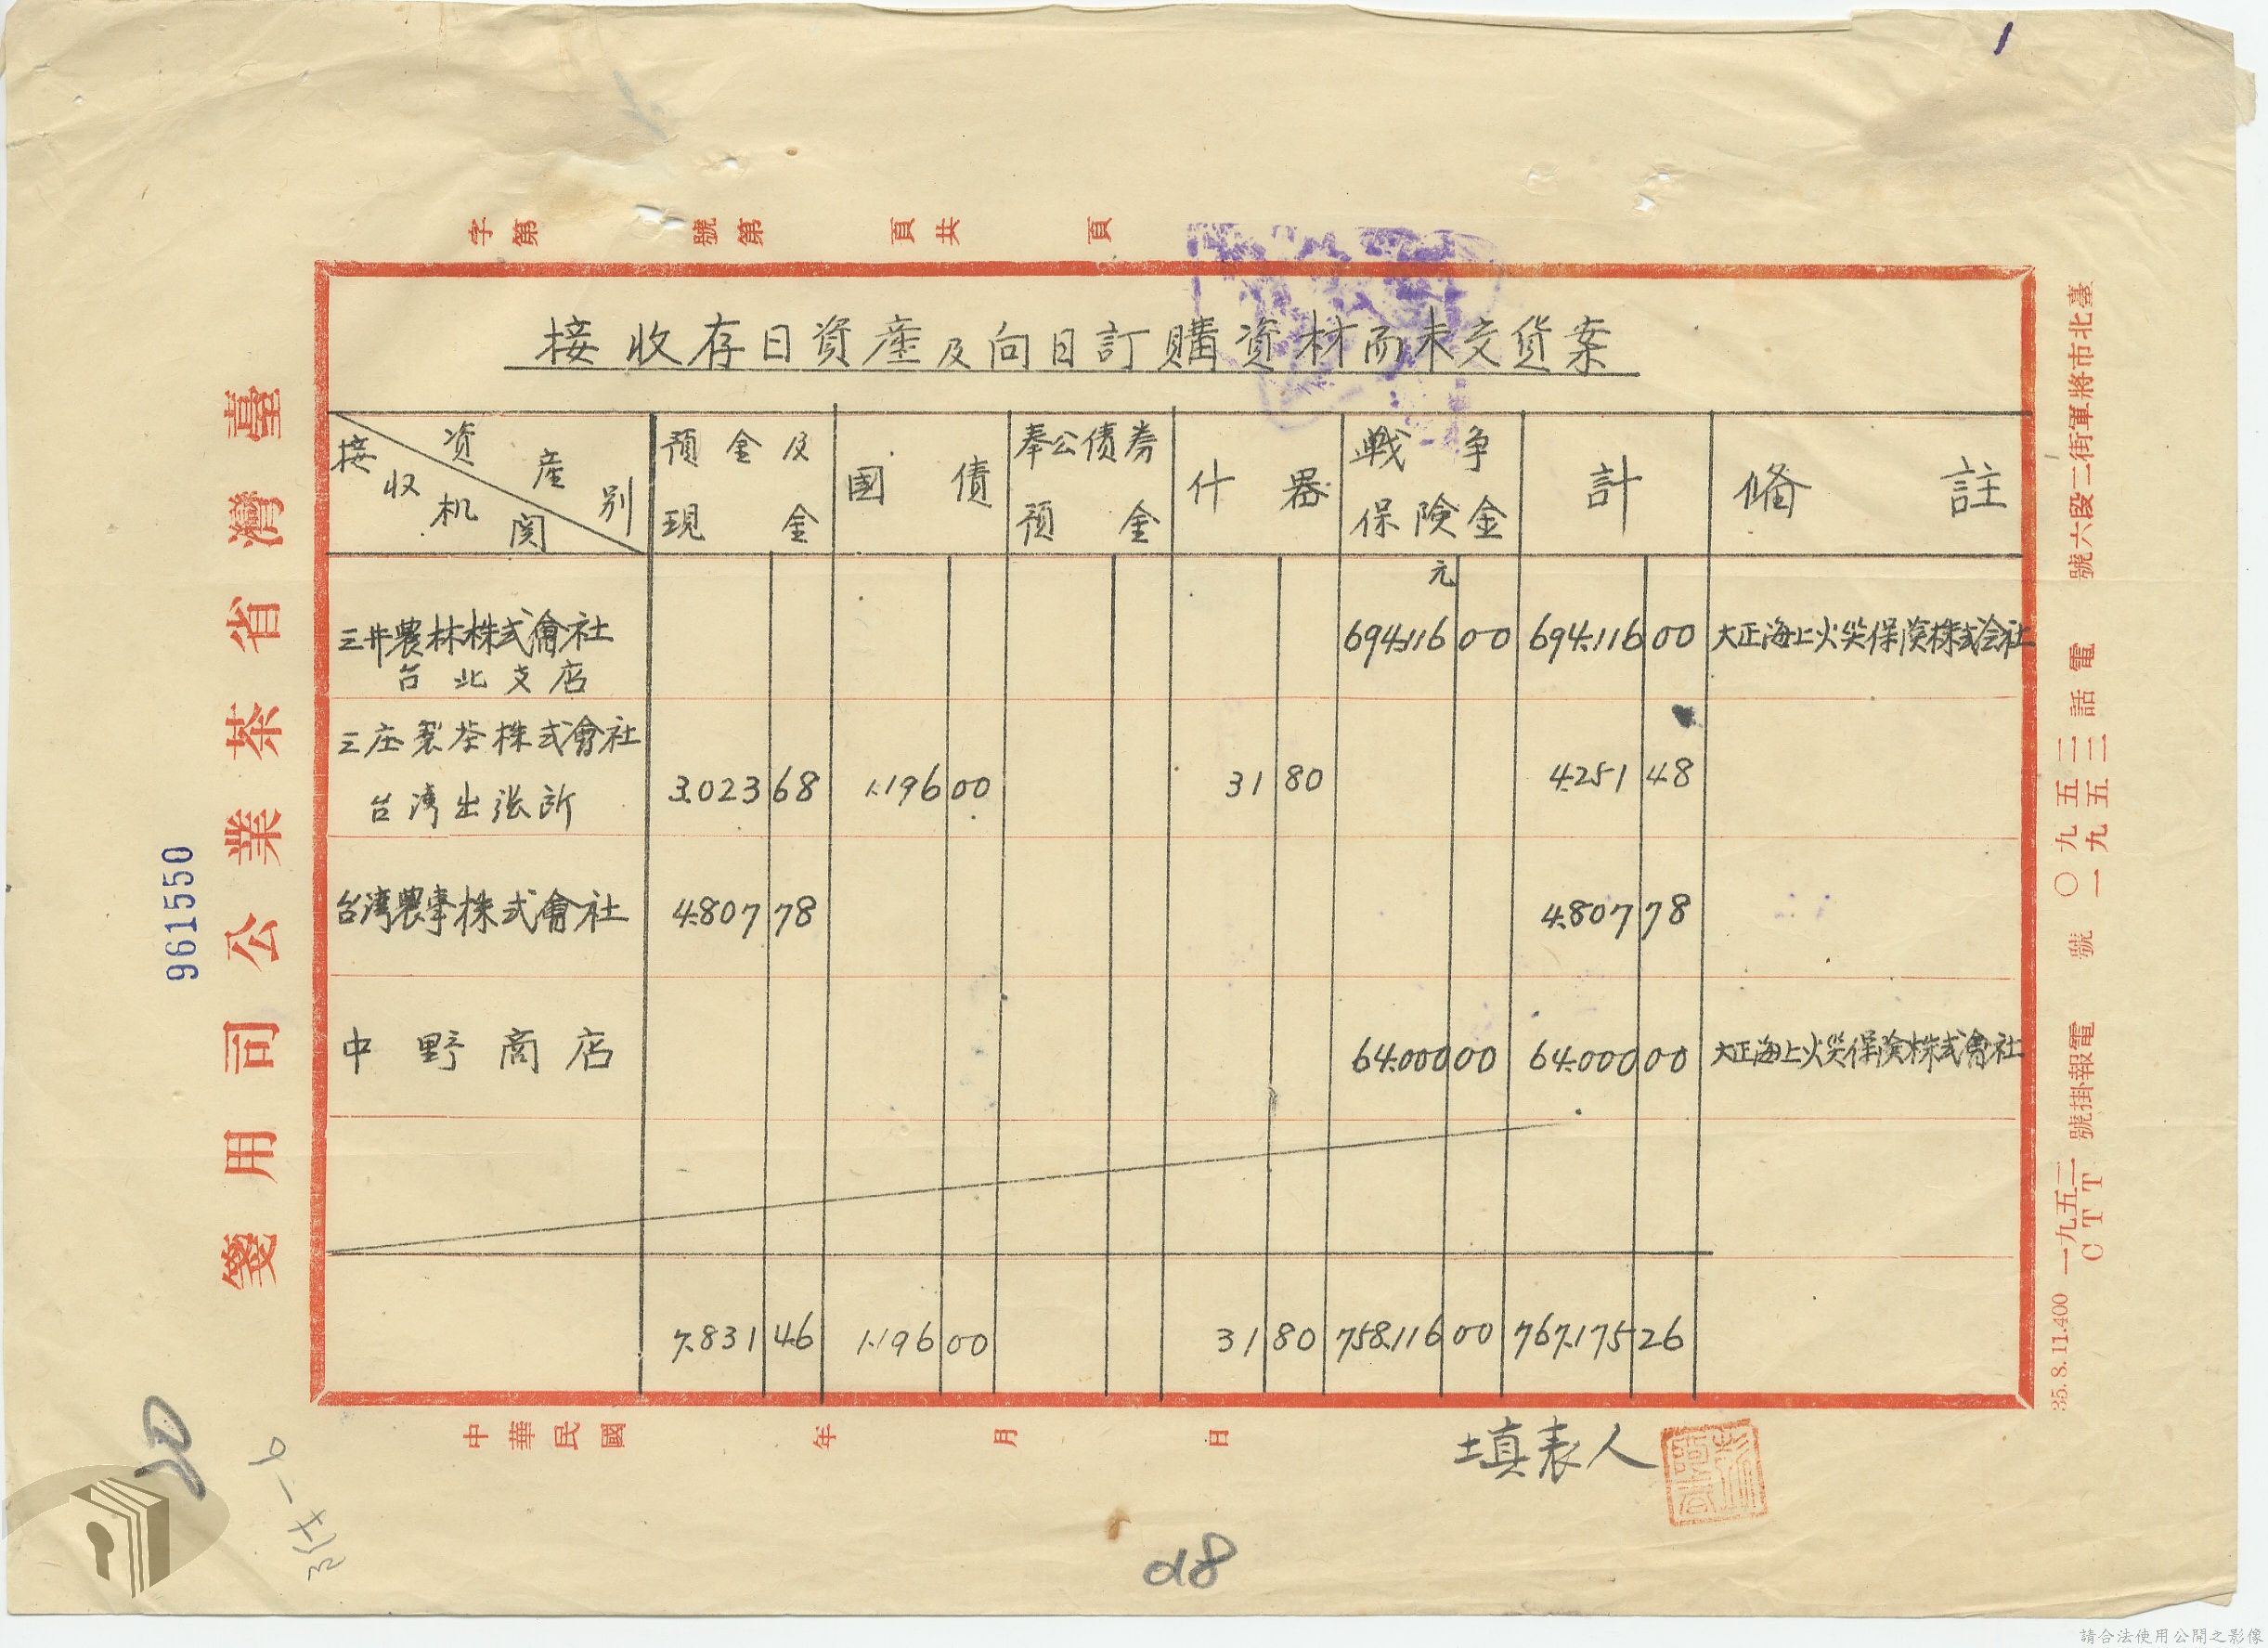 字第 號第 頁共 頁
接收存日資產及向日訂購資材而未交货案
资產别 接收机関 預金及現金 國債 奉公债券預金 什器 戦争保険金 計 俻註
元
三井農林株式會社台北支店 694.116 00 694.116 00 大正海上火災保険株式会社
三庄製茶株式會社台湾出張所 3.023 68 1.196 00 31 80 4.251 48
台湾農事株式會社 4.807 78 4.807 78
中野商店 64.000 00 64.000 00 大正海上火災保険株式會社
7.831 46 1.196 00 31 80 758.116 00 767.175 26
中華民國 年 月 日
填表人
臺灣省茶業公司用箋
961550
臺北市將軍街二段六號
電話三三九五〇 一九五三號
電報掛號 一九五二 CTT
35.8.11.400
20
d8
請合法使用公開之影像